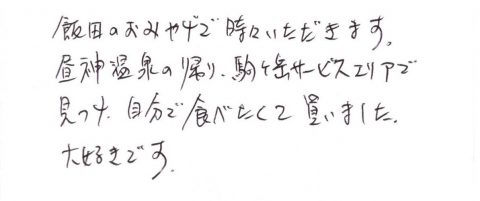 飯田のおみやげで時々いただきます。
昼神温泉の帰り、駒ヶ岳サービスエリアで
見つけ、自分で食べたくて買いました。
大好きです。